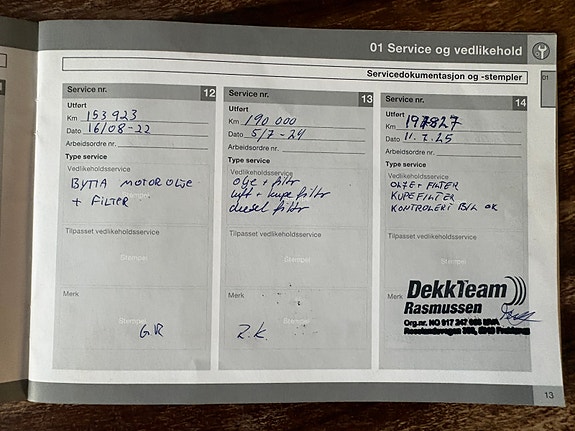 01 Service og vedlikehold
Servicedokumentasjon og -stempler
01
Service nr. 12
Utført
Km 153 923
Dato 16/08-22
Arbeidsordre nr.
Type service
Vedlikeholdsservice
BYTTA MOTOROLJE
+ FILTER
Tilpasset vedlikeholdsservice
Stempel
Merk
Stempel
G.R
Service nr. 13
Utført
Km 190 000
Dato 5/7-24
Arbeidsordre nr.
Type service
Vedlikeholdsservice
olje + filtr
luft + kupe filtr
diesel filtr
Tilpasset vedlikeholdsservice
Stempel
Merk
Z.K.
Service nr. 14
Utført
Km 197827
Dato 11.7.25
Arbeidsordre nr.
Type service
Vedlikeholdsservice
OLJE + FILTER
KUPEFILTER
KONTROLERT BIL OK
Tilpasset vedlikeholdsservice
Stempel
Merk
DekkTeam
Rasmussen
Org.nr. NO 917 247 MVA
13